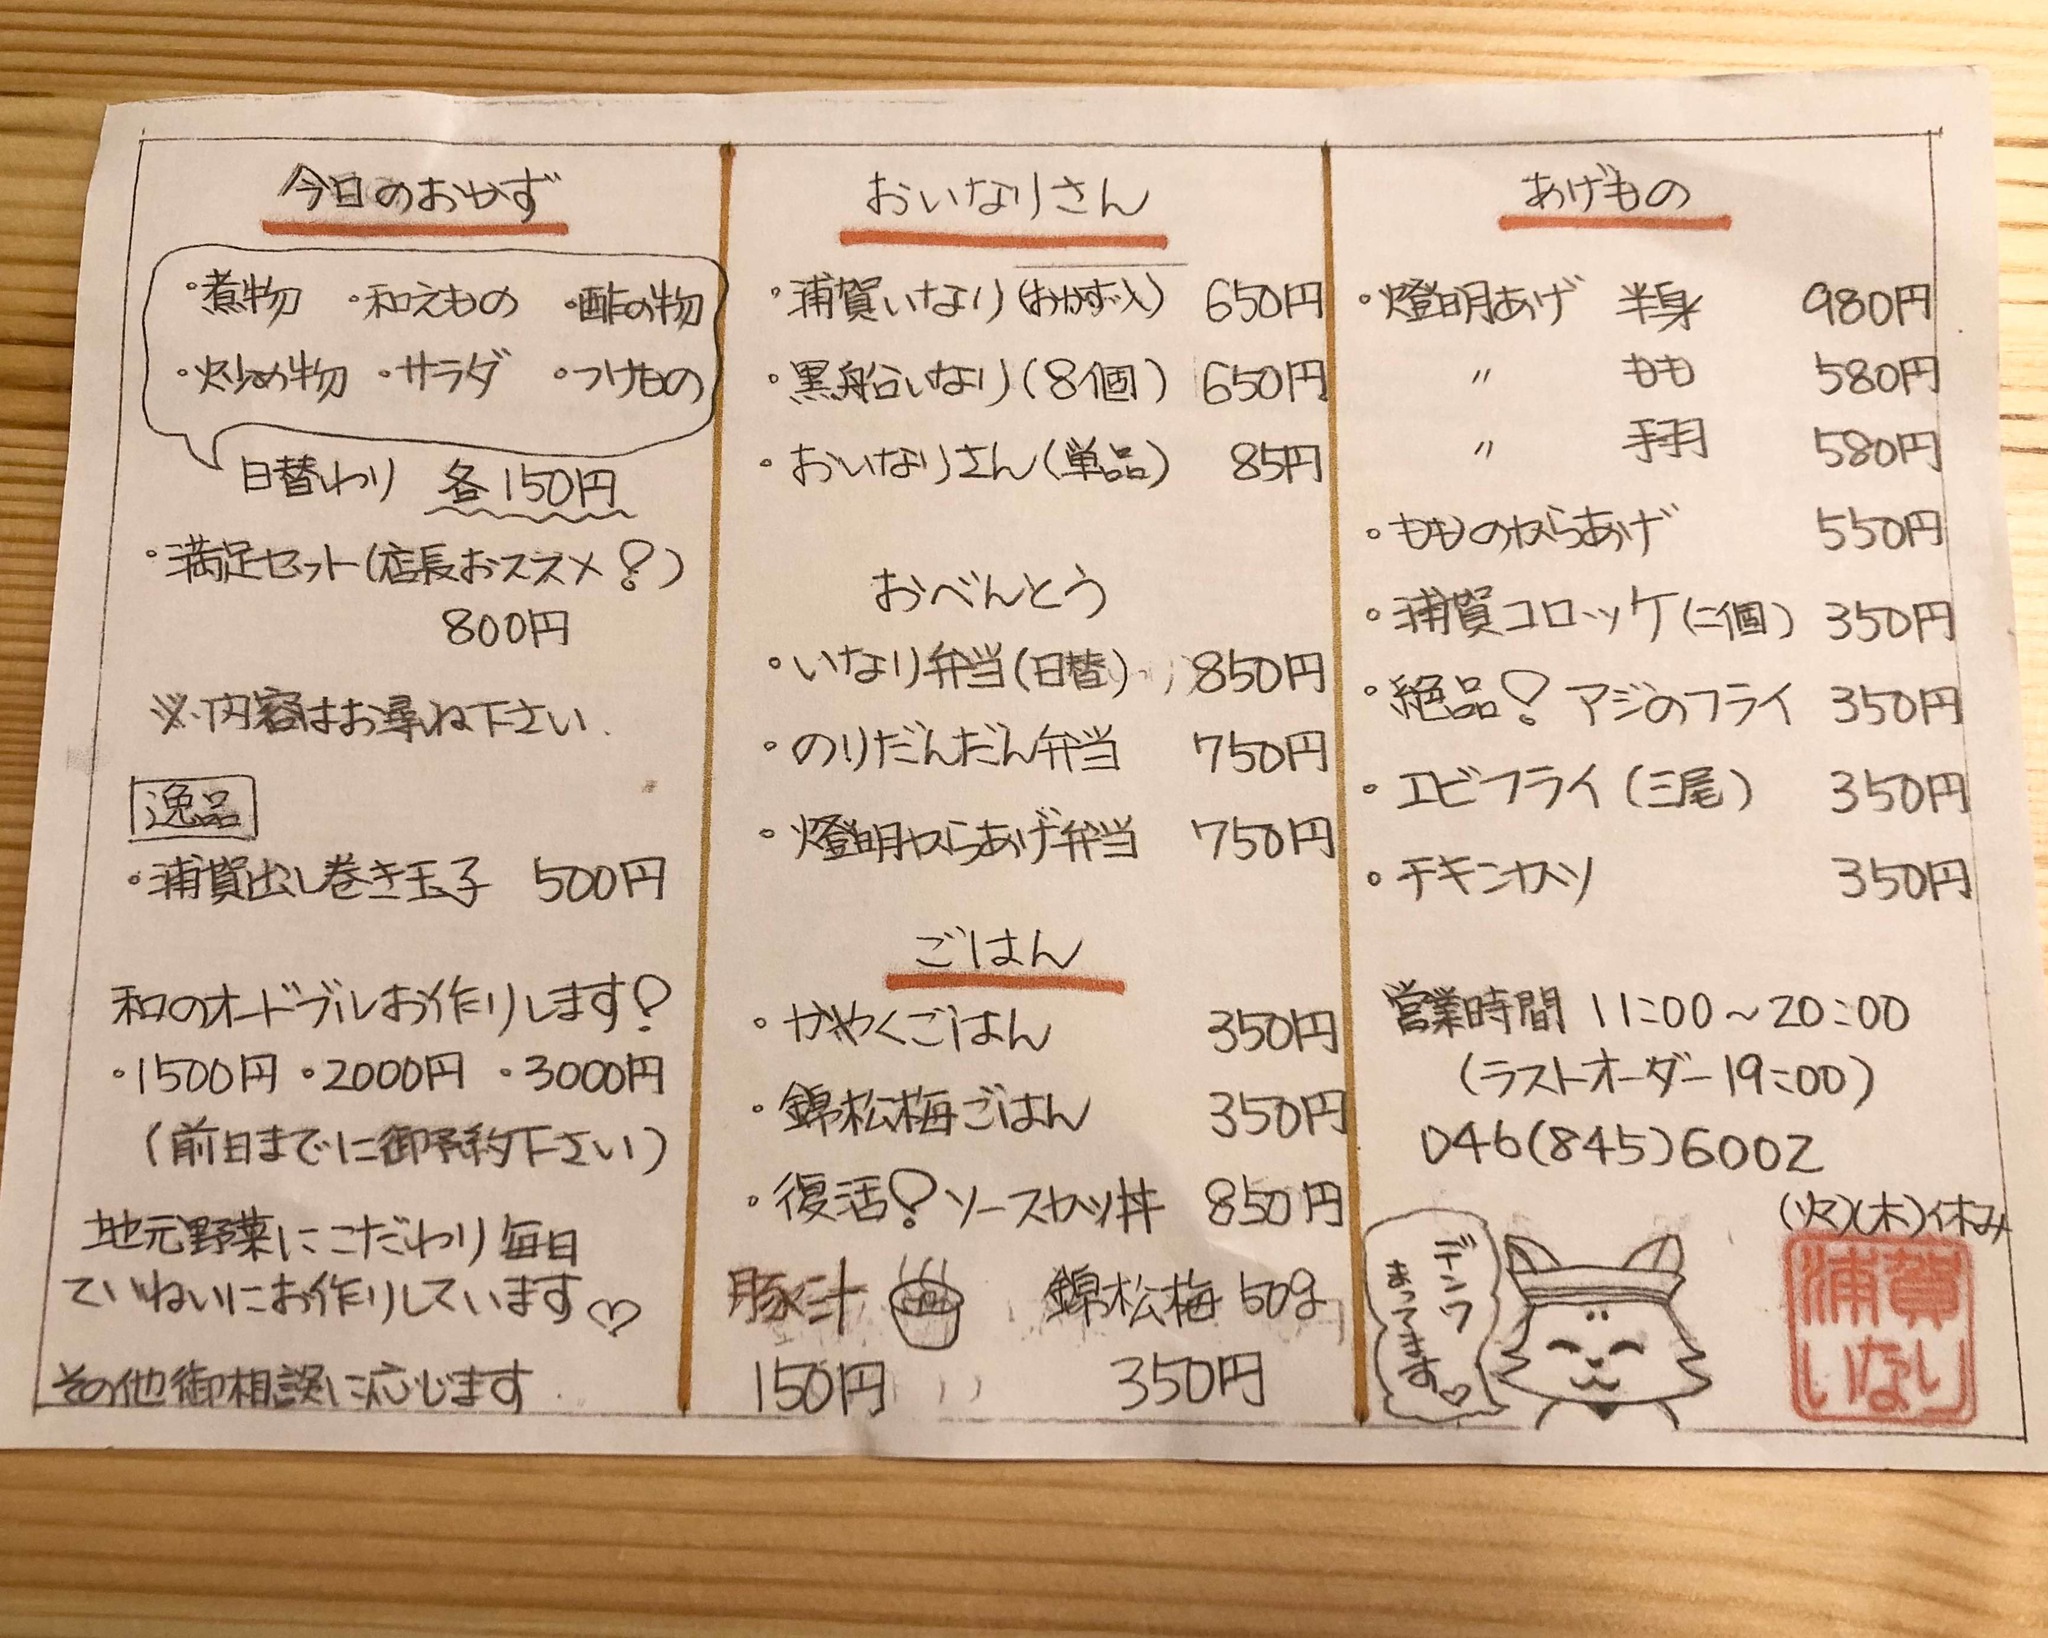 今日のおかず
・煮物 ・和えもの ・酢の物
・炒め物 ・サラダ ・つけもの
日替わり 各150円
・満足セット(店長おススメ!)
800円
※内容はお尋ね下さい.
逸品
・浦賀出し巻き玉子 500円
和のオードブルお作りします!
・1500円 ・2000円 ・3000円
(前日までに御予約下さい)
地元野菜にこだわり毎日
ていねいにお作りしています♡
その他御相談に応じます.
おいなりさん
・浦賀いなり(おかず入) 650円
・黒船いなり(8個) 650円
・おいなりさん(単品) 85円
おべんとう
・いなり弁当(日替) 850円
・のりだんだん弁当 750円
・燈明からあげ弁当 750円
ごはん
・かやくごはん 350円
・錦松梅ごはん 350円
・復活!ソースカツ丼 850円
豚汁 錦松梅 50g
150円 350円
あげもの
・燈明あげ 半身 980円
〃 もも 580円
〃 手羽 580円
・もものからあげ 550円
・浦賀コロッケ(二個) 350円
・絶品!アジのフライ 350円
・エビフライ(三尾) 350円
・チキンカツ 350円
営業時間 11:00~20:00
(ラストオーダー19:00)
046(845)6002
(火)(木)休み
デンワ
まってます♡
浦賀
いなり